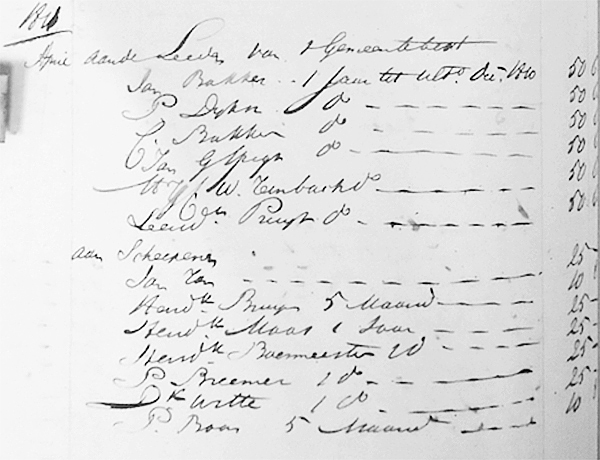 1811
April aande Leeden van 't Gemeentebest
Jan Bakker .. 1 Jaar tot ult.o Dec. 1810 50
P Dyker do 50
C. Bakker do 50
Jan do 50
W. do 50
Leend. Pruyt do 50
aan Scheepenen
Jan Tan 25
Hend.k Bruyn 5 Maand 10
Hend.k Maas 1 Jaar 25
Hend.k Boermeester 1 do 25
P Breemer 1 do 25
Dk Witte 1 do 25
P. Boon 5 Maand 10